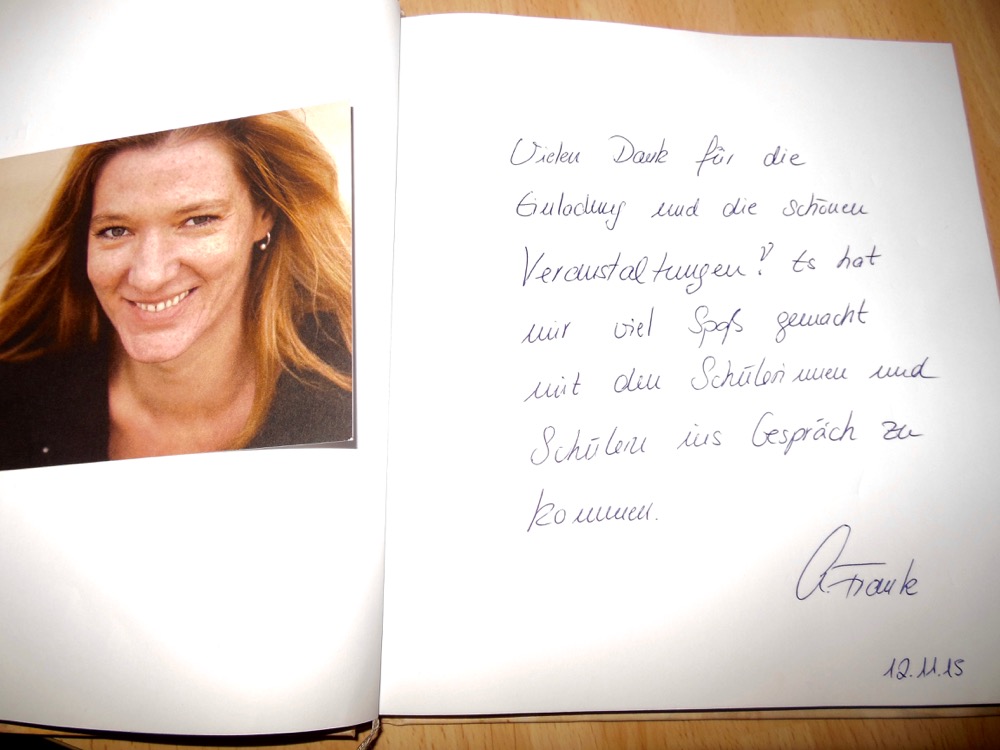 Vielen Dank für die
Einladung und die schönen
Veranstaltungen! Es hat
mir viel Spaß gemacht
mit den Schülerinnen und
Schülern ins Gespräch zu
kommen.
A. Franke
12.11.15